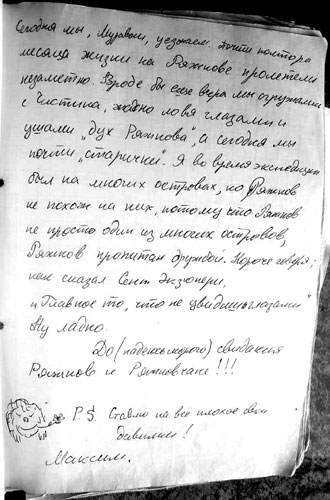 Сегодня мы, Муравьи, уезжаем. Почти полтора
месяца жизни на Ряжкове пролетели
незаметно. Вроде бы еще вчера мы отружались
с "Истина", жадно ловя глазами и
ушами "дух Ряжкова", а сегодня мы
почти "старички". Я во время экспедиции
был на многих островах, но Ряжков
не похож на них, потому что Ряжков
не просто один из многих островов,
Ряжков пропитан дружбой. Короче говоря,
как сказал Сент Экзюпери,
"Главное то, что не увидишь глазами"
Ну ладно.
До (надеюсь скорого) свидания
Ряжково и Ряжковчане!!!
P.S. Ставлю на всё плохое свои
Максим.